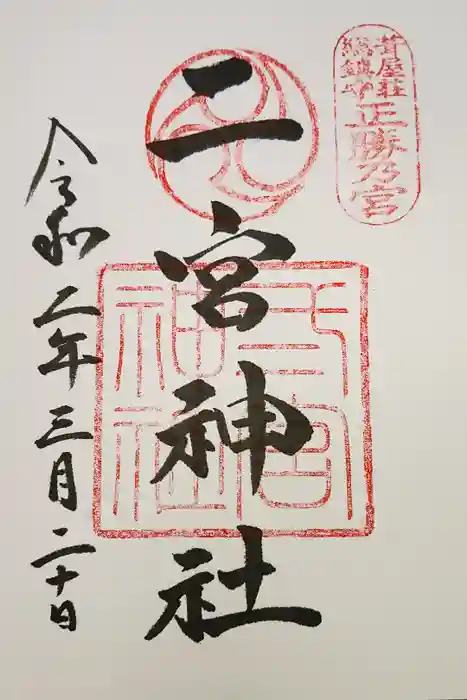 葺屋荘
総鎮守
正勝乃宮
二宮神社
宮
神社
令和二年三月二十日